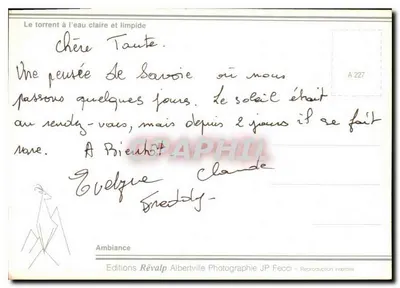 Le torrent à l'eau claire et limpide
Chère Tante.
Une pensée de Savoie où nous
passons quelques jours. Le soleil était
au rendez-vous, mais depuis 2 jours il se fait
rare. A Bientôt
Evelyne Claude
Freddy
A 227
Ambiance
Editions Révalp Albertville Photographie JP Fecci - Reproduction interdite